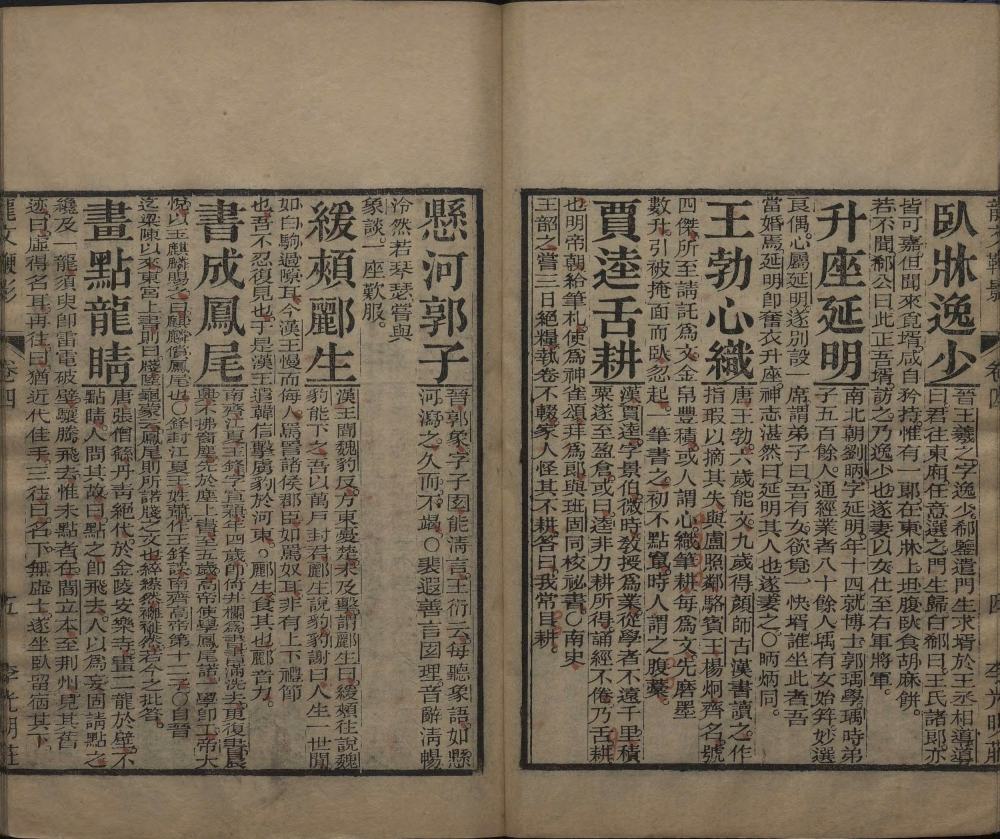 臥牀逸少 晉王羲之字逸少郗鑒遣門生求壻於王丞相導導
曰君往東廂任意選之門生歸白郗曰王氏諸郎亦
皆可嘉但聞來覓壻咸自矜持惟有一郎在東牀上坦腹臥食胡麻餅
若不聞郗公曰此正吾壻訪之乃逸少也遂妻以女仕至右軍將軍
升座延明 南北朝劉昞字延明年十四就博士郭瑀學瑀時弟
子五百餘人通經業者八十餘人瑀有女始笄妙選
良偶心屬延明遂別設一席謂弟子曰吾有女欲覓一快壻誰坐此者吾
當婚焉延明卽奮衣升座神志湛然曰延明其人也遂妻之〇昞炳同
王勃心織 唐王勃六歲能文九歲得顏師古漢書讀之作
指瑕以摘其失與盧照鄰駱賓王楊炯齊名號
四傑所至請託爲文金帛豐積或人謂心織筆耕每爲文先磨墨
數升引被掩面而臥忽起一筆書之初不點竄時人謂之腹藁
賈逵舌耕 漢賈逵字景伯微時教授爲業從學者不遠千里積
粟遂至盈倉或曰逵非力耕所得誦經不倦乃舌耕
也明帝朝給筆札使爲神雀頌拜爲郎與班固同校祕書〇南史
王韶之嘗三日絕糧執卷不輟家人怪其不耕答曰我常自耕
懸河郭子 晉郭象字子玄能淸言王衍云每聽象語如懸
河瀉之久而不竭〇裴遐善言玄理音辭淸暢
泠然若琴瑟嘗與
象談一座歎服
緩頰酈生 漢王聞魏豹反方東憂楚未及擊謂酈生曰緩頰往說魏
豹能下之吾以萬戶封君酈生說豹豹謝曰人生一世間
如白駒過隙耳今漢王慢而侮人罵詈諸侯郡臣如罵奴耳非有上下禮節
也吾不忍復見也于是漢王遣韓信擊虜豹於河東〇酈生食其也酈音力
書成鳳尾
畫點龍睛 唐張僧繇丹靑絕代於金陵安樂寺畫二龍於壁不
點睛人問其故曰點之卽飛去人以爲妄固請點之
纔及一龍須臾卽雷電破壁驤騰飛去惟未點者在閻立本至荆州見其舊
迹曰虛得名耳再往曰猶近代佳手三往曰名下無虛士遂坐臥留宿其下
龍文鞭影
卷四
五
李光明莊